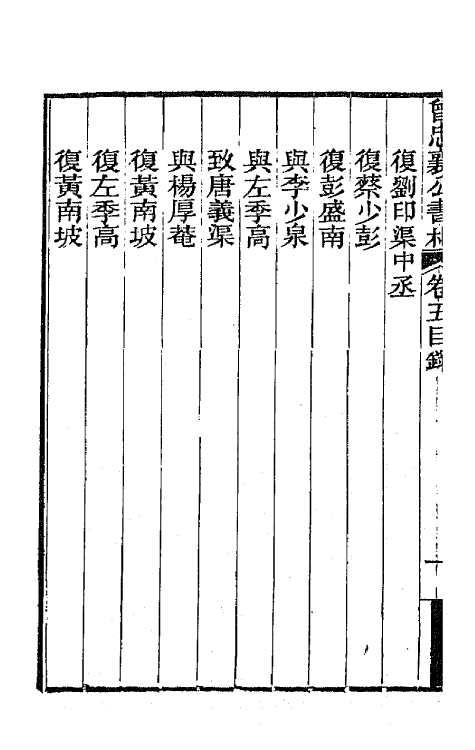 曾忠襄公書札 卷五目錄 一
復劉印渠中丞
復蔡少彭
復彭盛南
與李少泉
與左季高
致唐義渠
與楊厚菴
復黃南坡
復左季高
復黃南坡